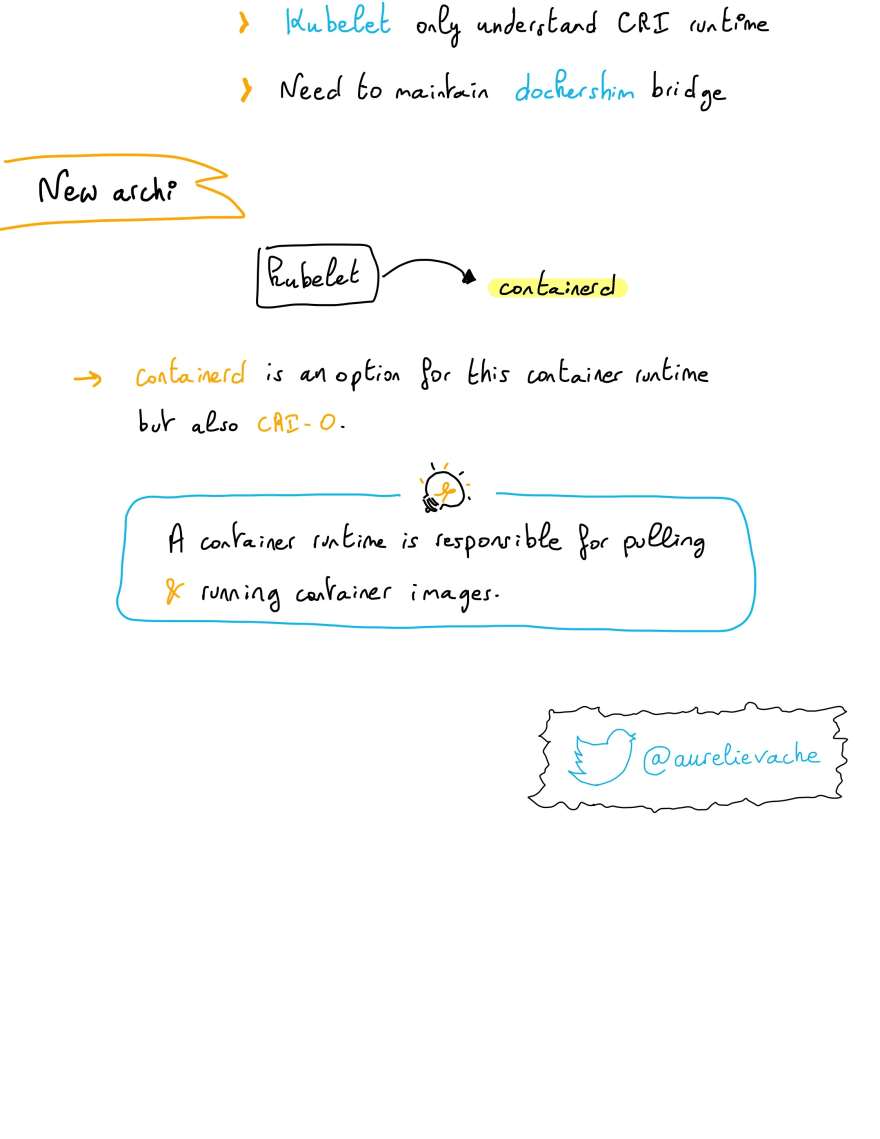 Kubelet only understand CRI runtime
Need to maintain dockershim bridge
New archi
Kubelet
containerd
→ containerd is an option for this container runtime
but also CRI-O.
A container runtime is responsible for pulling
& running container images.
@aurelievache